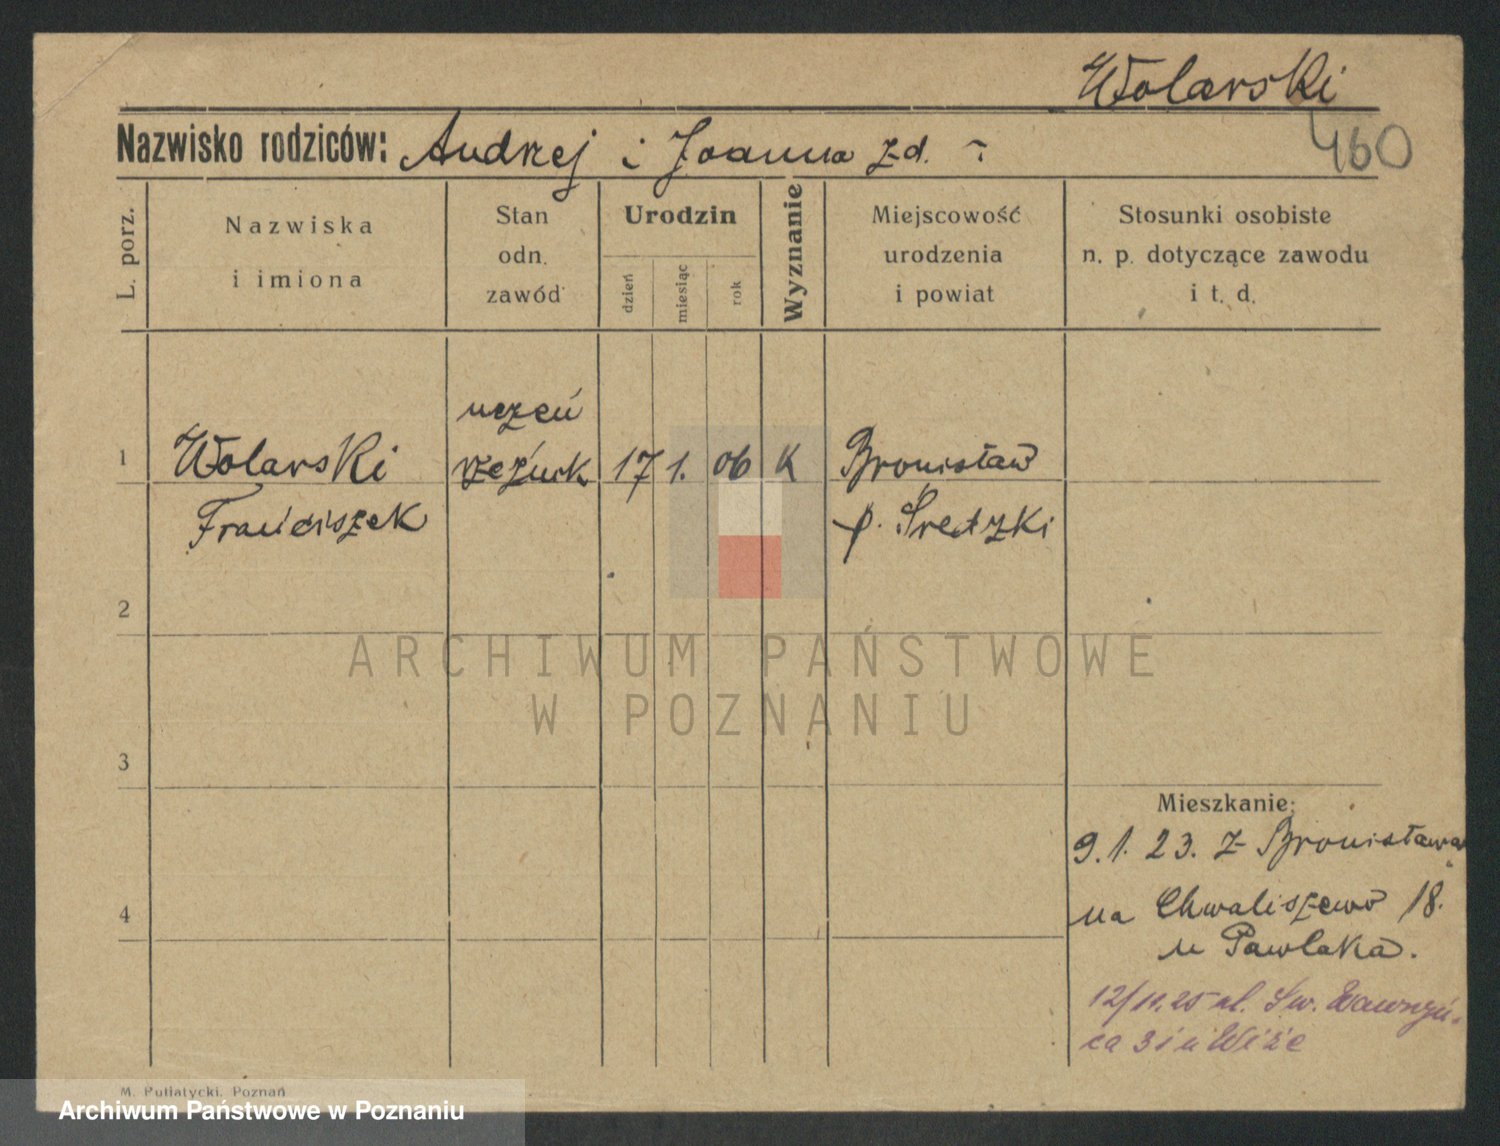 Wolarski
460
Nazwisko rodziców: Andrzej i Joanna zd. -
L. porz.
Nazwiska
i imiona
Stan
odn.
zawód
Urodzin
dzień
miesiąc
rok
Wyznanie
Miejscowość
urodzenia
i powiat
Stosunki osobiste
n. p. dotyczące zawodu
i t. d.
uczeń
1 Wolarski rzeźnick 17 1. 06 K Bronisław
Franciszek p. Średzki
2
ARCHIWUM PAŃSTWOWE
W POZNANIU
3
Mieszkanie:
9.1.23. z Bronisława
4 na Chwaliszewo 18.
u Pawlaka.
12/11.25 ul. Św. Wawrzyń-
ca 31 u Wiże
M. Putiatycki, Poznań
Archiwum Państwowe w Poznaniu